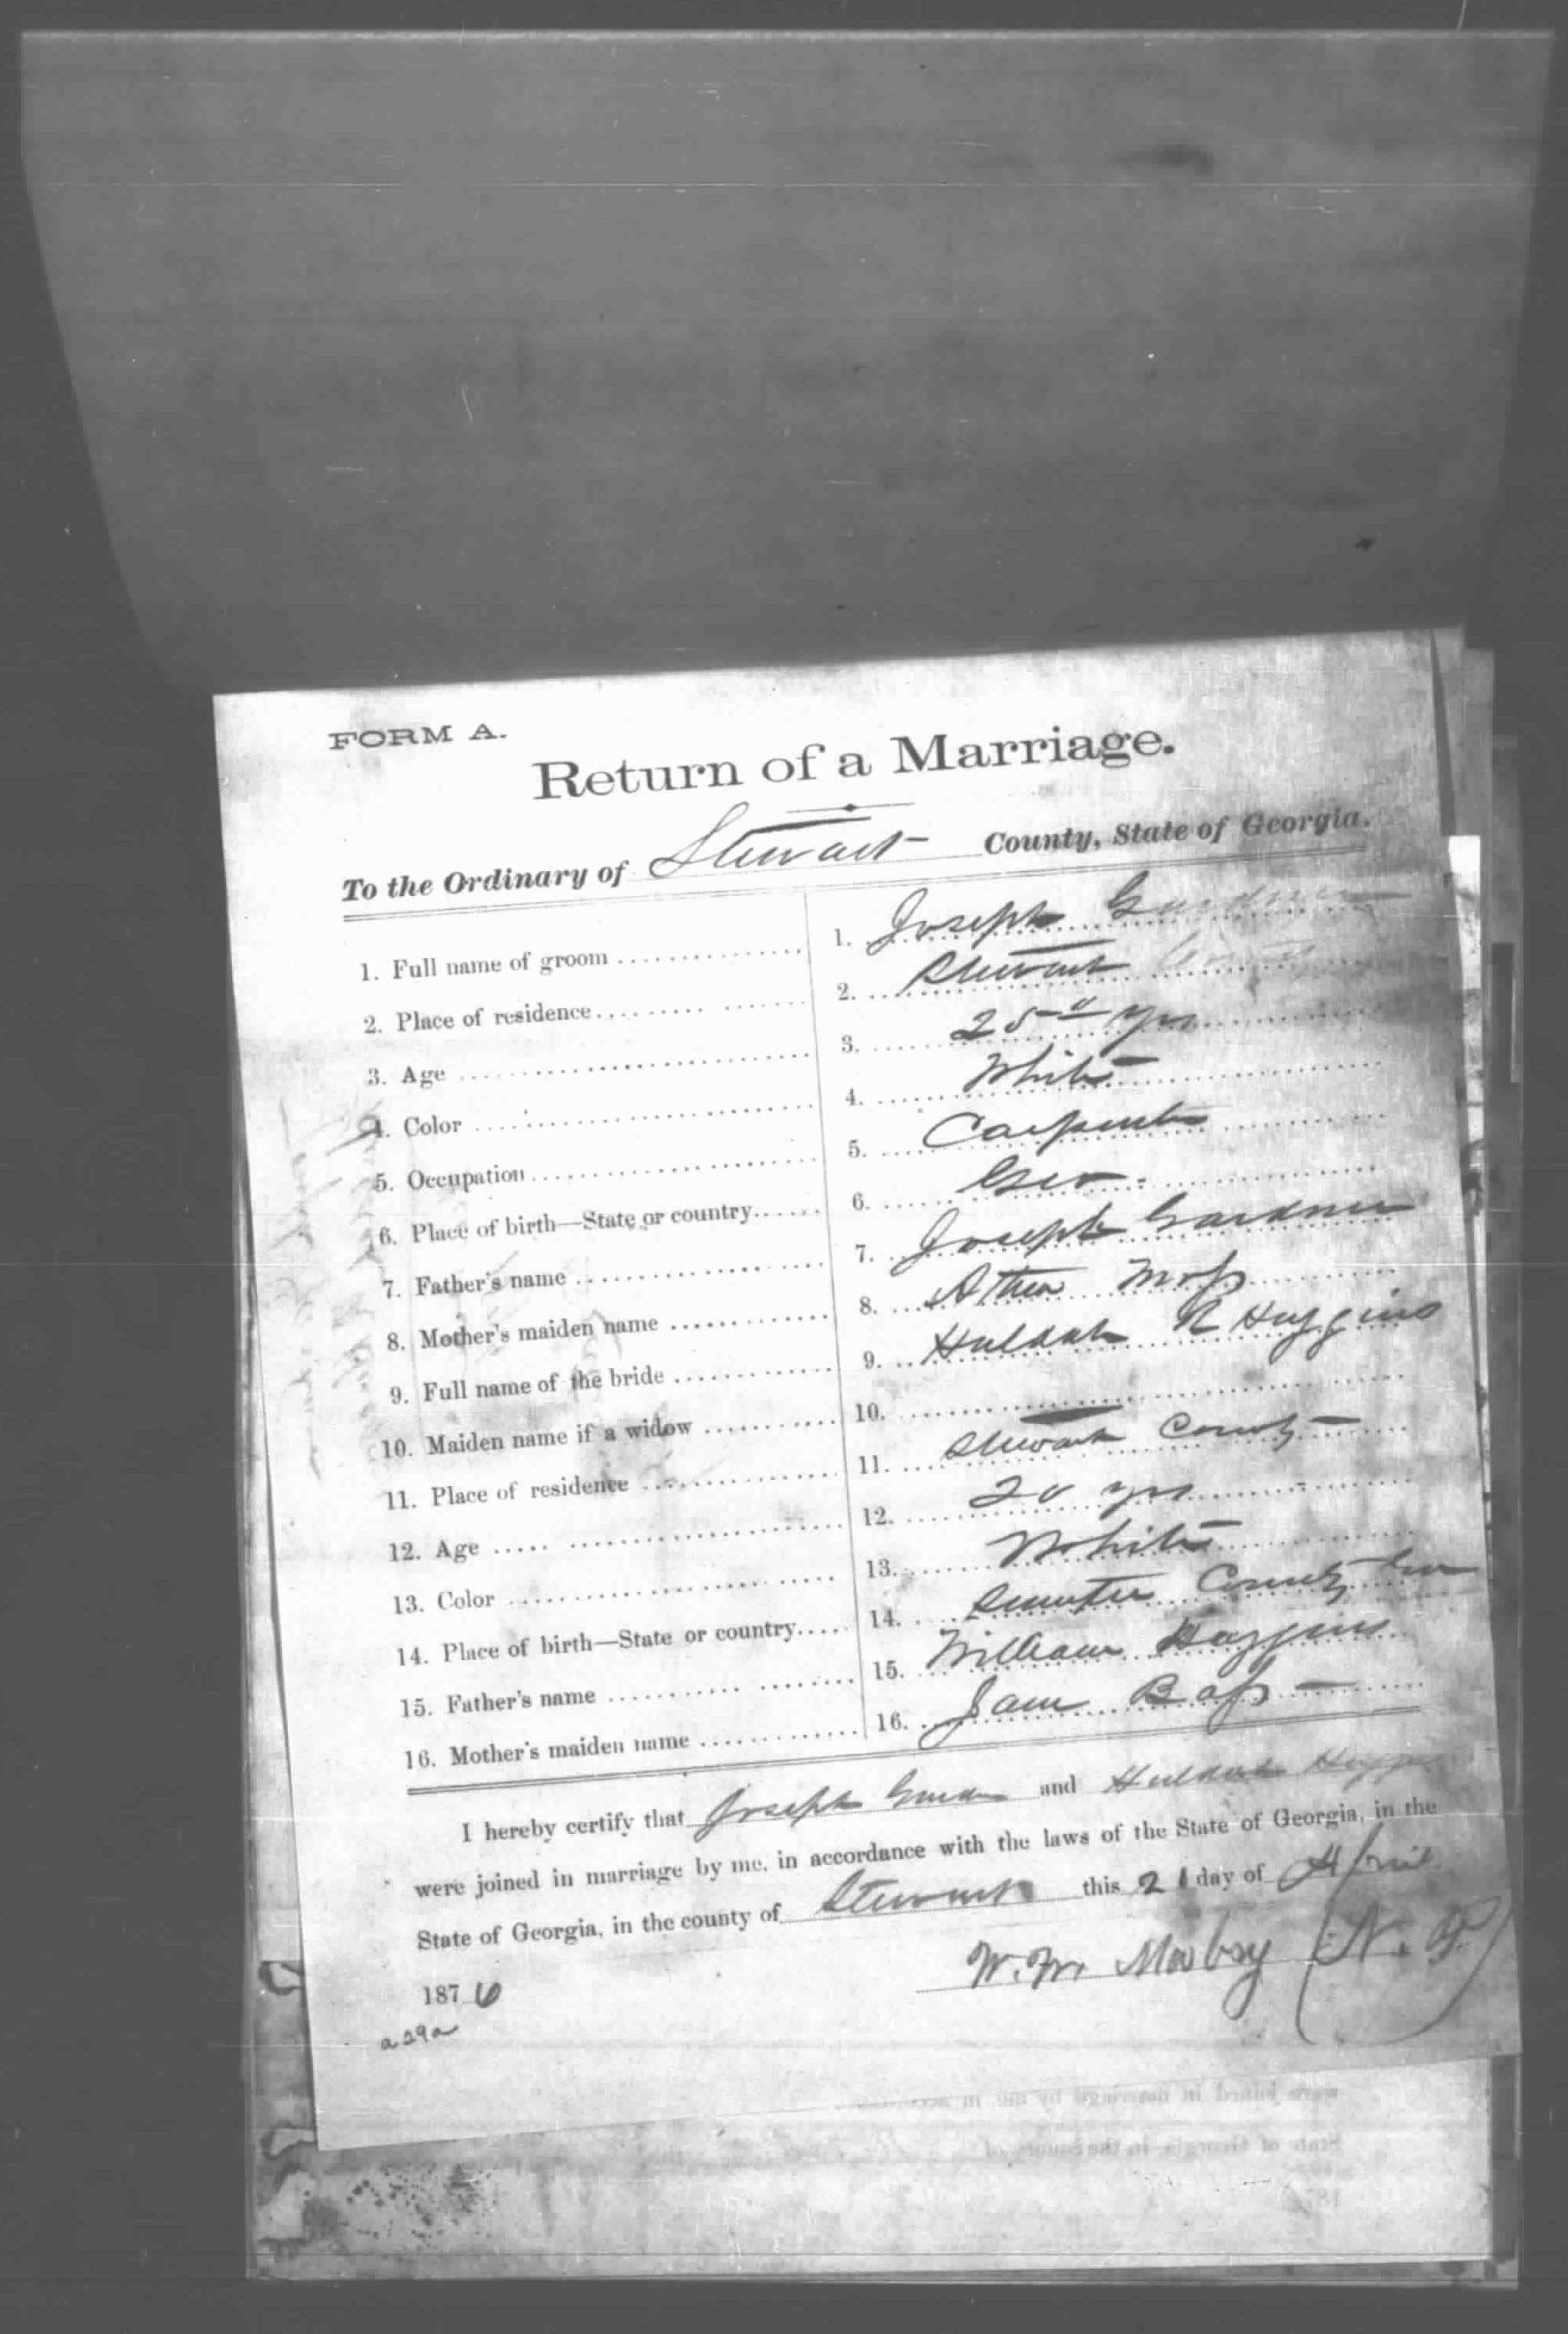 FORM A.
Return of a Marriage.
To the Ordinary of Stewart County, State of Georgia.
1. Full name of groom 1. Joseph Gardner
2. Place of residence 2. Stewart County
3. Age 3. 25 yrs
4. Color 4. White
5. Occupation 5. Carpenter
6. Place of birth—State or country 6. Geo.
7. Father's name 7. Joseph Gardner
8. Mother's maiden name 8. Moss
9. Full name of the bride 9. Huldah R Huggins
10. Maiden name if a widow 10. —
11. Place of residence 11. Stewart County
12. Age 12. 20 yrs
13. Color 13. White
14. Place of birth—State or country 14. Sumter County Geo
15. Father's name 15. William Huggins
16. Mother's maiden name 16. Jane Bass
I hereby certify that Joseph and Huldah
were joined in marriage by me, in accordance with the laws of the State of Georgia, in the
State of Georgia, in the county of Stewart this 21 day of April
1876 W. M. Mabry (N. P.)
a29a